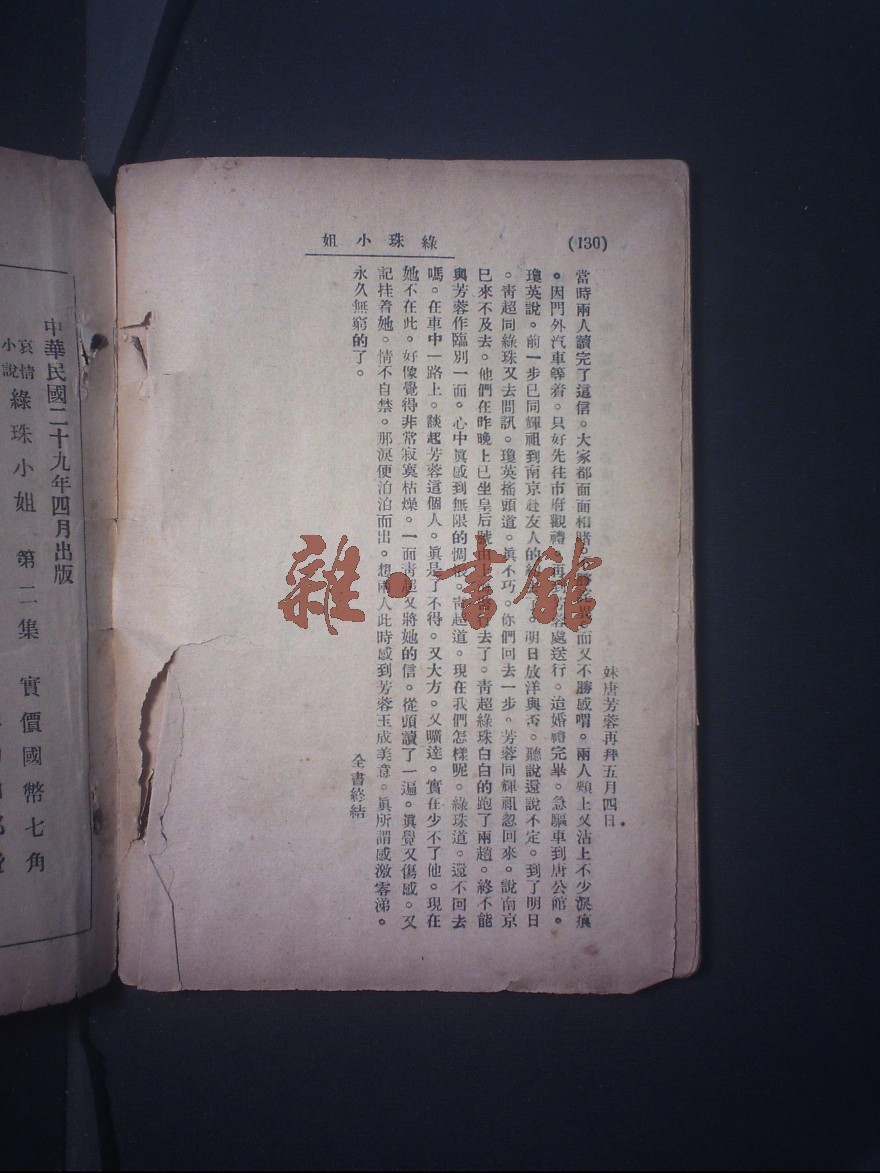 (130)
綠珠小姐
妹唐芳蓉再拜五月四日。
當時兩人讀完了這信。大家都面面相睹。而又不勝感喟。兩人頰上又沾上不少淚痕
。因門外汽車等着。只好先往市府觀禮。再到芳蓉處送行。迨婚禮完畢。急驅車到唐公館。
瓊英說。前一步已同輝祖到南京赴友人的。明日放洋與否。聽說還說不定。到了明日
。靑超同綠珠又去問訊。瓊英搖頭道。眞不巧。你們回去一步。芳蓉同輝祖忽回來。說南京
已來不及去。他們在昨晚上已坐皇后號由上去了。靑超綠珠白白的跑了兩趟。終不能
與芳蓉作臨別一面。心中眞感到無限的惆悵。靑超道。現在我們怎樣呢。綠珠道。還不回去
嗎。在車中一路上。談起芳蓉這個人。眞是了不得。又大方。又曠達。實在少不了他。現在
她不在此。好像覺得非常寂寞枯燥。一面靑超又將她的信。從頭讀了一遍。眞覺又傷感。又
記挂着她。情不自禁。那淚便泊泊而出。想兩人此時感到芳蓉玉成美意。眞所謂感激零涕。
永久無窮的了。
全書終結
雜·書館
中華民國二十九年四月出版
哀情小說 綠珠小姐 第二集 實價國幣七角